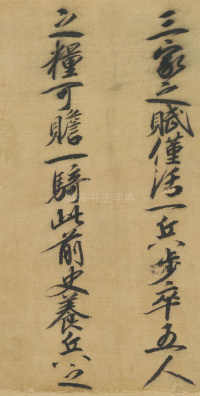 三家之賦僅活一兵步卒五人
之糧可贍一騎此前史養兵之